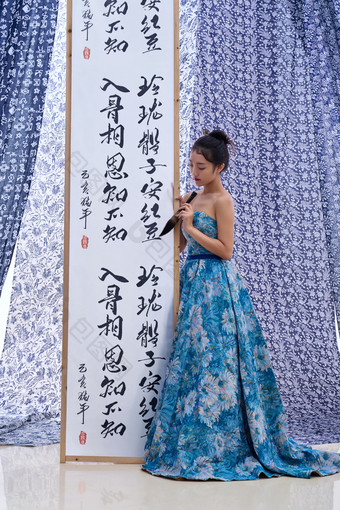 安红豆
知不知
玲珑骰子安红豆
入骨相思知不知
玲珑骰子安红豆
入骨相思知不知